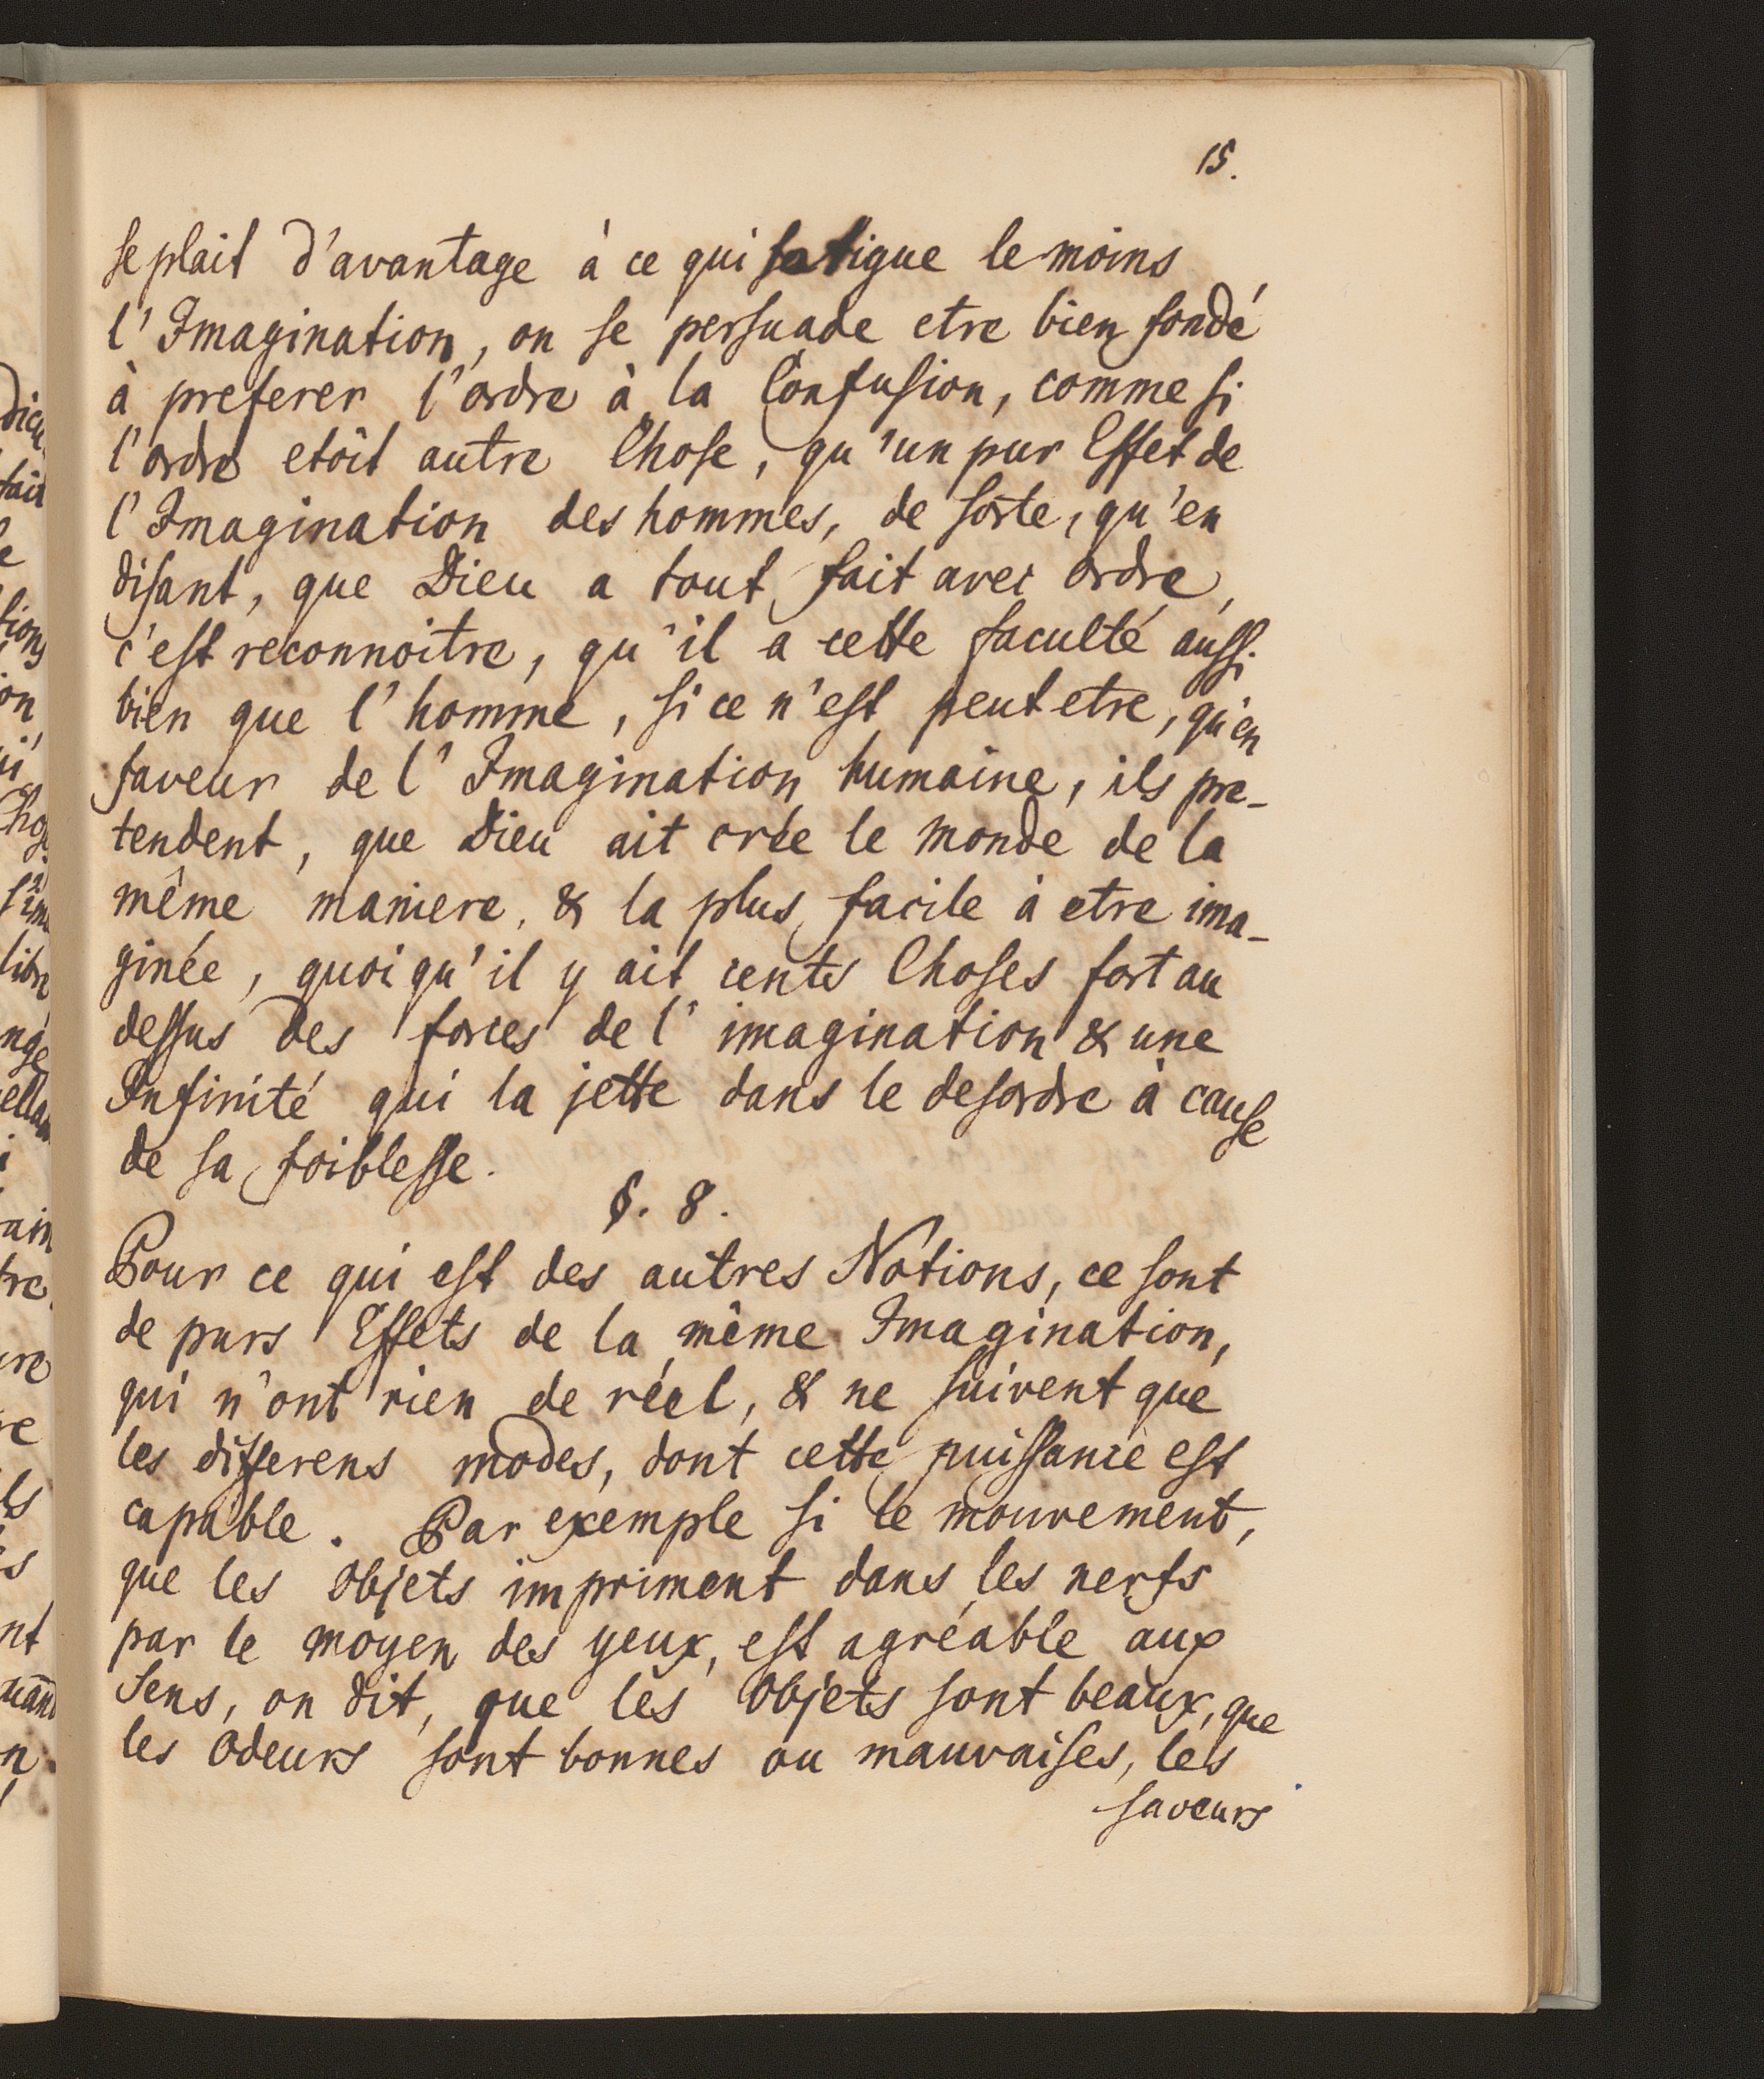 15.
se plait d'avantage à ce qui fatigue le moins
l'Imagination, on se persuade etre bien fondé
à preferer l'ordre à la Confusion, comme si
l'ordre etôit autre Chose, qu'un pur Effet de
l'Imagination des hommes, de sorte, qu'en
disant, que Dieu a tout fait avec ordre,
c'est reconnoitre, qu'il a cette faculté aussi
bien que l'homme, si ce n'est peut etre, qu'en
faveur de l'Imagination humaine, ils pre-
tendent, que Dieu ait crée le monde de la
même maniere, & la plus facile à etre ima-
ginée, quoiqu'il y ait cents Choses fort au
dessus des forces de l'imagination & une
Infinité qui la jette dans le desordre à cause
de sa foiblesse.
§. 8.
Pour ce qui est des autres Notions, ce sont
de purs Effets de la même Imagination,
qui n'ont rien de réel, & ne suivent que
les differens modes, dont cette puissance est
capable. Par exemple si le mouvement,
que les Objets impriment dans les nerfs
par le moyen des yeux, est agréable aux
Sens, on dit, que les Objets sont beaux, que
les Odeurs sont bonnes ou mauvaises, les
saveurs